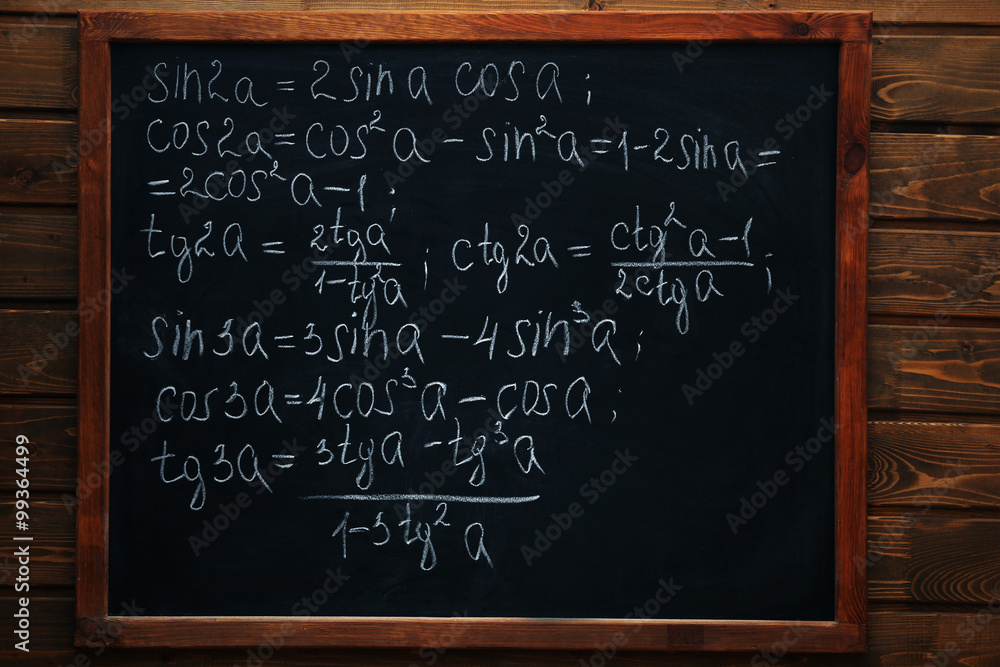 sin2a = 2sina cosa ;
cos2a = cos²a - sin²a = 1-2sina =
= 2cos²a - 1 ;
tg2a = 2tga / 1-tg²a ; ctg2a = ctg²a-1 / 2ctga ;
sin3a = 3sina - 4sin³a ;
cos3a = 4cos³a - cosa ;
tg3a = 3tga - tg³a / 1-3tg²a
Adobe Stock | #99364499